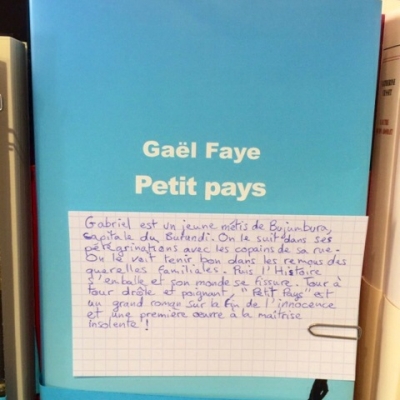 Gaël Faye
Petit pays
Gabriel est un jeune métis de Bujumbura,
capitale du Burundi. On le suit dans ses
pérégrinations avec les copains de sa rue.
On le voit tenir bon dans les remous des
querelles familiales. Puis l'Histoire
s'emballe et son monde se fissure. Tour à
tour drôle et poignant, "Petit Pays" est
un grand roman sur la fin de l'innocence
et une première œuvre à la maîtrise
insolente !